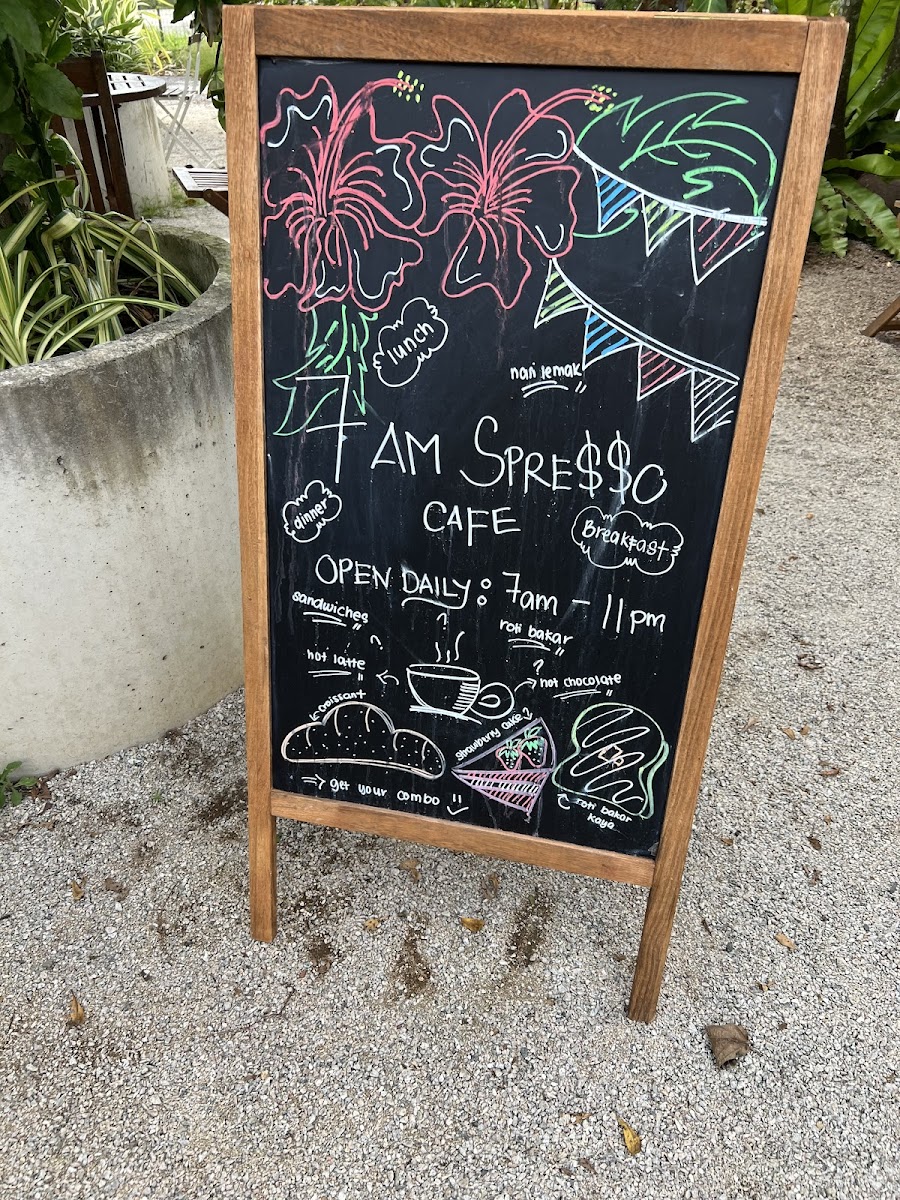 lunch
nasi lemak
7 AM SPRE$$O
CAFE
dinner
Breakfast
OPEN DAILY: 7am - 11pm
sandwiches
roti bakar
hot latte
?
?
hot chocolate
croissant
strawburry cake
roti bakar
kaya
get your combo !!